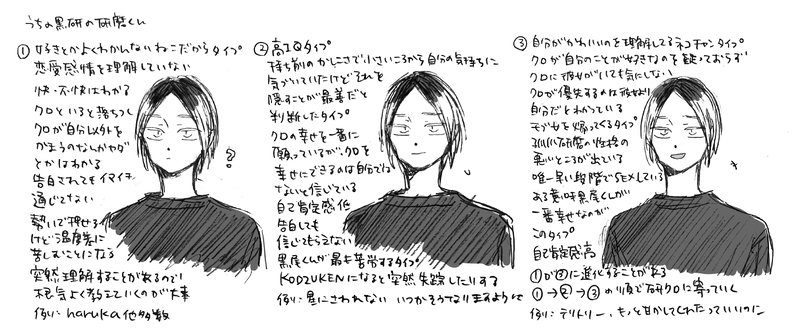 うちの黒研の研磨くん
① 好きとかよくわかんないねこだからタイプ
恋愛感情を理解していない
快・不快はわかる
クロといると落ちつく
クロが自分以外を
かまうのなんかヤダ
とかはわかる
告白されてもイマイチ
通じてない
勢いで押せる
けど温度差に
苦しむことになる
突然理解することがあるので
根気よく教えていくのが大事
例い: haruka他多数
② 高IQタイプ
持ち前のかしこさで小さいころから自分の気持ちに
気づいていたけどそれを
隠すことが最善だと
判断したタイプ
クロの幸せを一番に
願っていてが、クロを
幸せにできるのは自分では
ないと信じている
自己肯定感低
告白しても
信じてもらえない
黒尾くんが最も苦労するタイプ
KODZUKENになると突然失踪したりする
例い: 星にさわれない いつかそうなりますように
③ 自分がかわいいのを理解してるネコチャンタイプ
クロが自分のことが好きなのを疑っておらず
クロに彼女がいても気にしない
クロが優先するのは彼女より
自分だとわかっている
モブ女を帰ってくるタイプ
孤爪研磨の性格の
悪いところが出ている
唯一早い段階でSEXしている
ある意味黒尾くんが
一番幸せなのが
このタイプ
自己肯定感高
①が②に進化することがある
①→②→③の順で研クロに寄っていく
例い: テリトリー、もっと甘かしてくれたっていいのに